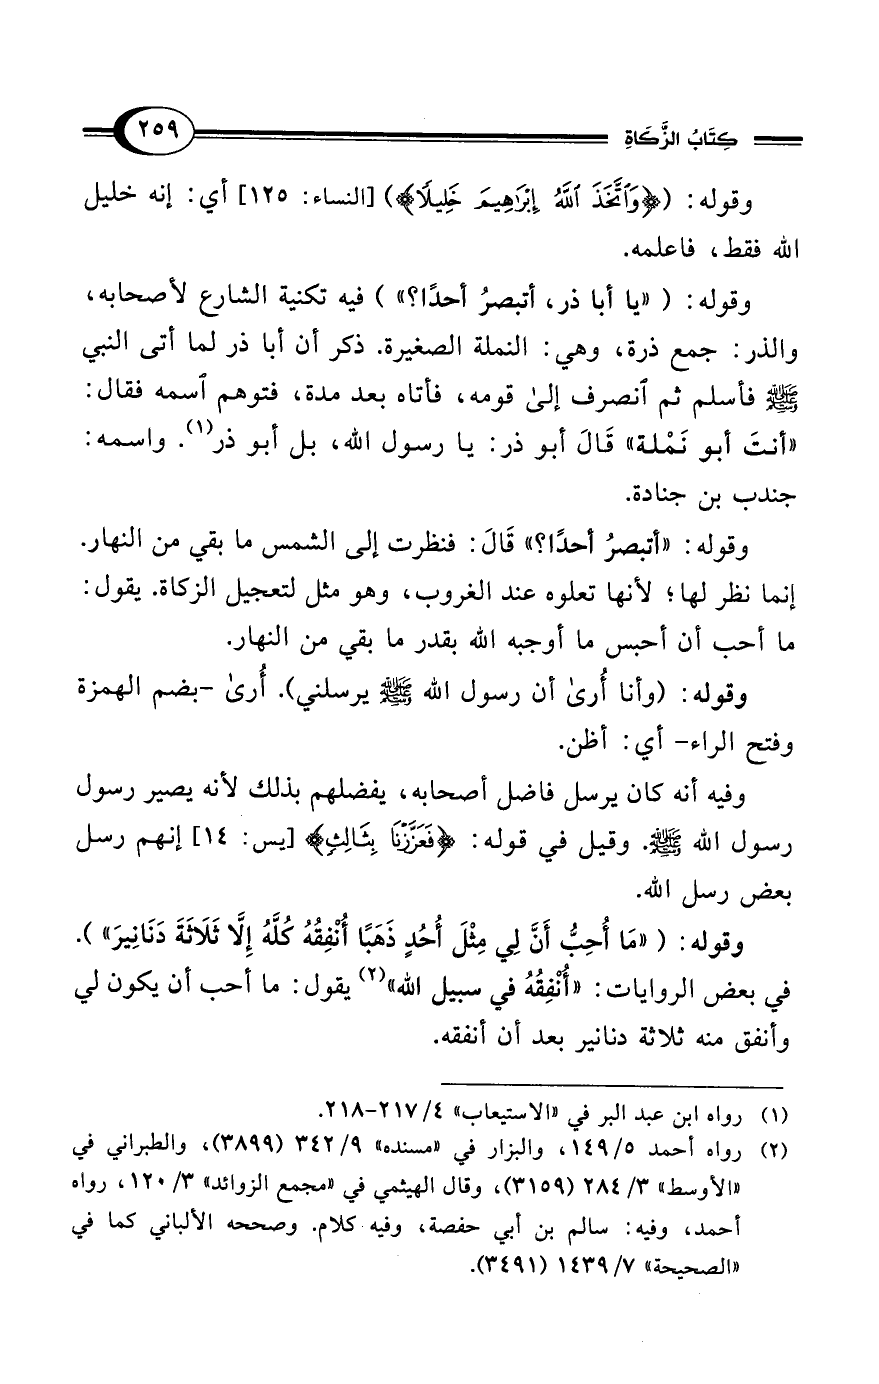 كِتَابُ الزَّكَاةِ ٢٥٩
وقوله: (﴿وَٱتَّخَذَ ٱللَّهُ إِبْرَٰهِيمَ خَلِيلًا﴾) [النساء: ١٢٥] أي: إنه خليل
الله فقط، فاعلمه.
وقوله: ( «يا أبا ذر، أتبصرُ أحدًا؟» ) فيه تكنية الشارع لأصحابه،
والذر: جمع ذرة، وهي: النملة الصغيرة. ذكر أن أبا ذر لما أتى النبي
ﷺ فأسلم ثم ٱنصرف إلىٰ قومه، فأتاه بعد مدة، فتوهم ٱسمه فقال:
«أنتَ أبو نَمْلة» قَالَ أبو ذر: يا رسول الله، بل أبو ذر(١). واسمه:
جندب بن جنادة.
وقوله: «أتبصرُ أحدًا؟» قَالَ: فنظرت إلى الشمس ما بقي من النهار.
إنما نظر لها؛ لأنها تعلوه عند الغروب، وهو مثل لتعجيل الزكاة. يقول:
ما أحب أن أحبس ما أوجبه الله بقدر ما بقي من النهار.
وقوله: (وأنا أُرىٰ أن رسول الله ﷺ يرسلني). أُرىٰ -بضم الهمزة
وفتح الراء- أي: أظن.
وفيه أنه كان يرسل فاضل أصحابه، يفضلهم بذلك لأنه يصير رسول
رسول الله ﷺ. وقيل في قوله: ﴿فَعَزَّزْنَا بِثَالِثٍ﴾ [يس: ١٤] إنهم رسل
بعض رسل الله.
وقوله: ( «مَا أُحِبُّ أَنَّ لِي مِثْلَ أُحُدٍ ذَهَبًا أُنْفِقُهُ كُلَّهُ إِلَّا ثَلَاثَةَ دَنَانِيرَ» ).
في بعض الروايات: «أُنْفِقُهُ في سبيل الله»(٢) يقول: ما أحب أن يكون لي
وأنفق منه ثلاثة دنانير بعد أن أنفقه.
(١) رواه ابن عبد البر في «الاستيعاب» ٤/ ٢١٧-٢١٨.
(٢) رواه أحمد ٥/ ١٤٩، والبزار في «مسنده» ٩/ ٣٤٢ (٣٨٩٩)، والطبراني في
«الأوسط» ٣/ ٢٨٤ (٣١٥٩)، وقال الهيثمي في «مجمع الزوائد» ٣/ ١٢٠، رواه
أحمد، وفيه: سالم بن أبي حفصة، وفيه كلام. وصححه الألباني كما في
«الصحيحة» ٧/ ١٤٣٩ (٣٤٩١).